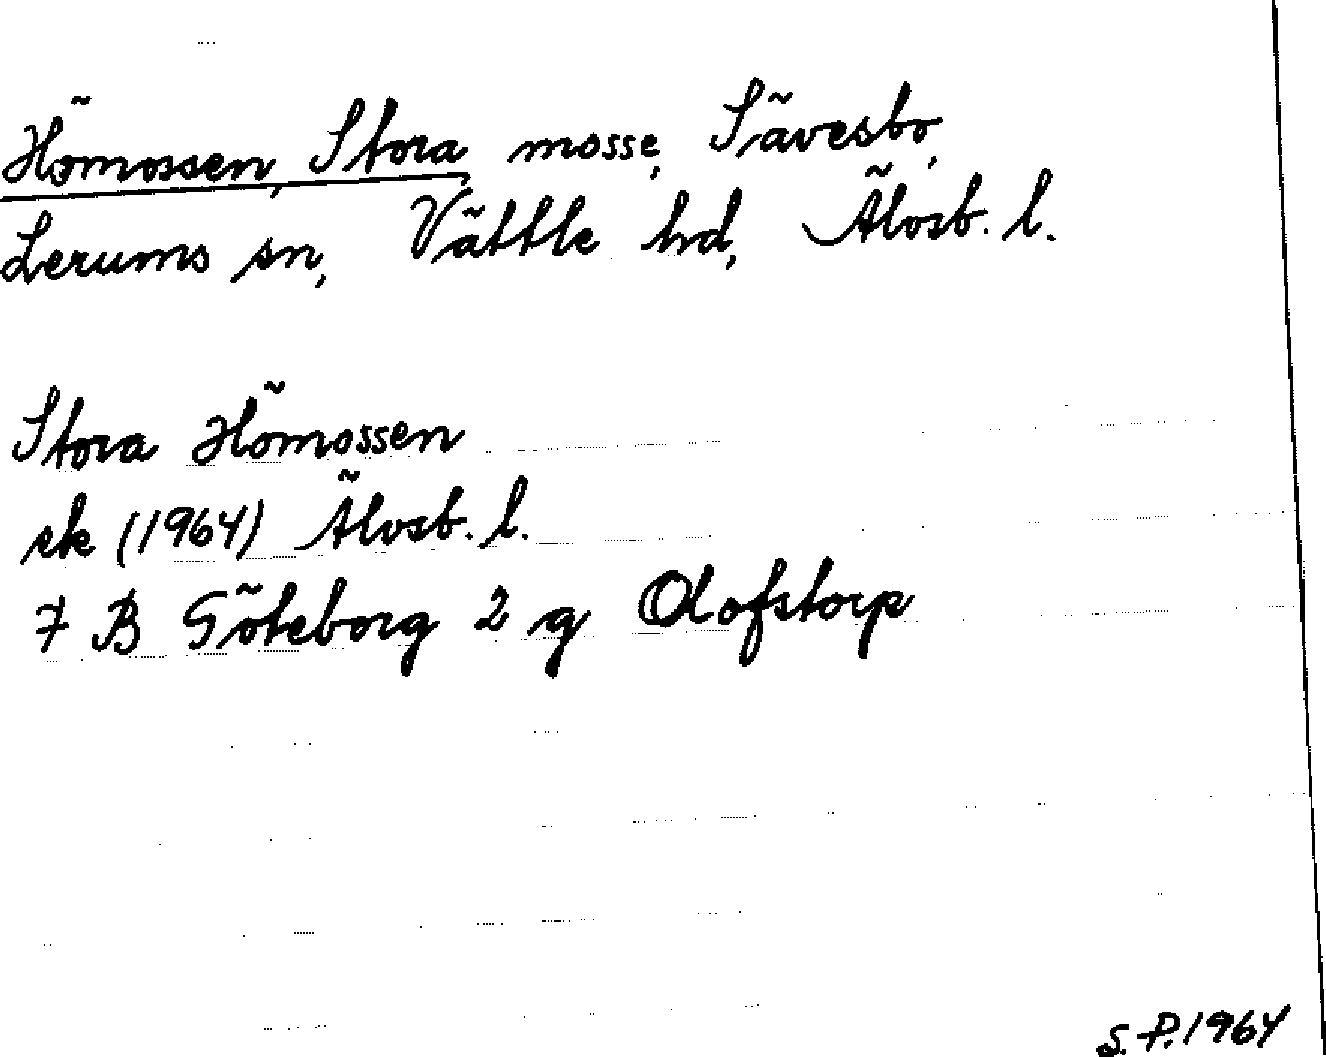 Hömossen, Stora, mosse, Sävesbo,
Lerums sn, Vättle hd, Älvsb. l.
Stora Hömossen
ek (1964) Älvsb. l.
7 B Göteborg 2 g Olofstorp
S. P. 1964